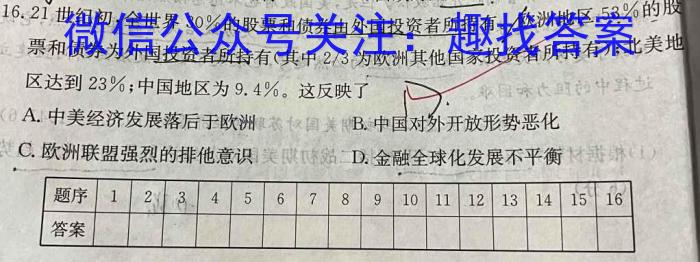 16.21世纪初,全世界30%的股票和债券由外国投资者所持有,欧洲地区53%的股
票和债券为外国投资者所持有(其中2/3为欧洲其他国家投资者所持有),北美地
微信公众号关注：趣找答案
区达到23%;中国地区为9.4%。这反映了
D.
A.中美经济发展落后于欧洲 B.中国对外开放形势恶化
C.欧洲联盟强烈的排他意识 D.金融全球化发展不平衡
题序 1 2 3 4 5 6 7 8 9 10 11 12 13 14 15 16
答案